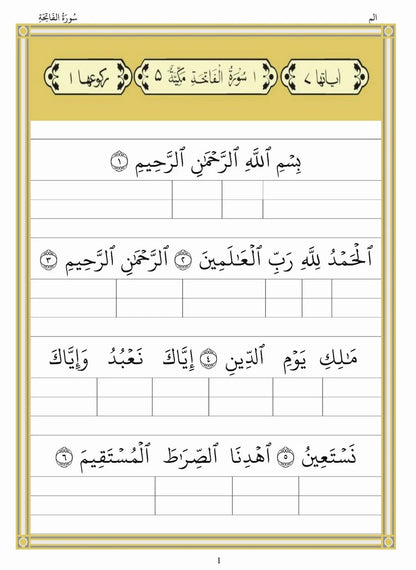 الٓمٓ سُورَةُ الفَاتِحَةِ
اٰیاتها ٧ ١ سُوْرَةُ الْفَاتِحَةِ مَكِّيَّةٌ ٥ رکوعها ١
بِسْمِ ٱللَّهِ ٱلرَّحْمَٰنِ ٱلرَّحِيمِ ١
ٱلْحَمْدُ لِلَّهِ رَبِّ ٱلْعَٰلَمِينَ ٢ ٱلرَّحْمَٰنِ ٱلرَّحِيمِ ٣
مَٰلِكِ يَوْمِ ٱلدِّينِ ٤ إِيَّاكَ نَعْبُدُ وَإِيَّاكَ
نَسْتَعِينُ ٥ ٱهْدِنَا ٱلصِّرَٰطَ ٱلْمُسْتَقِيمَ ٦
1